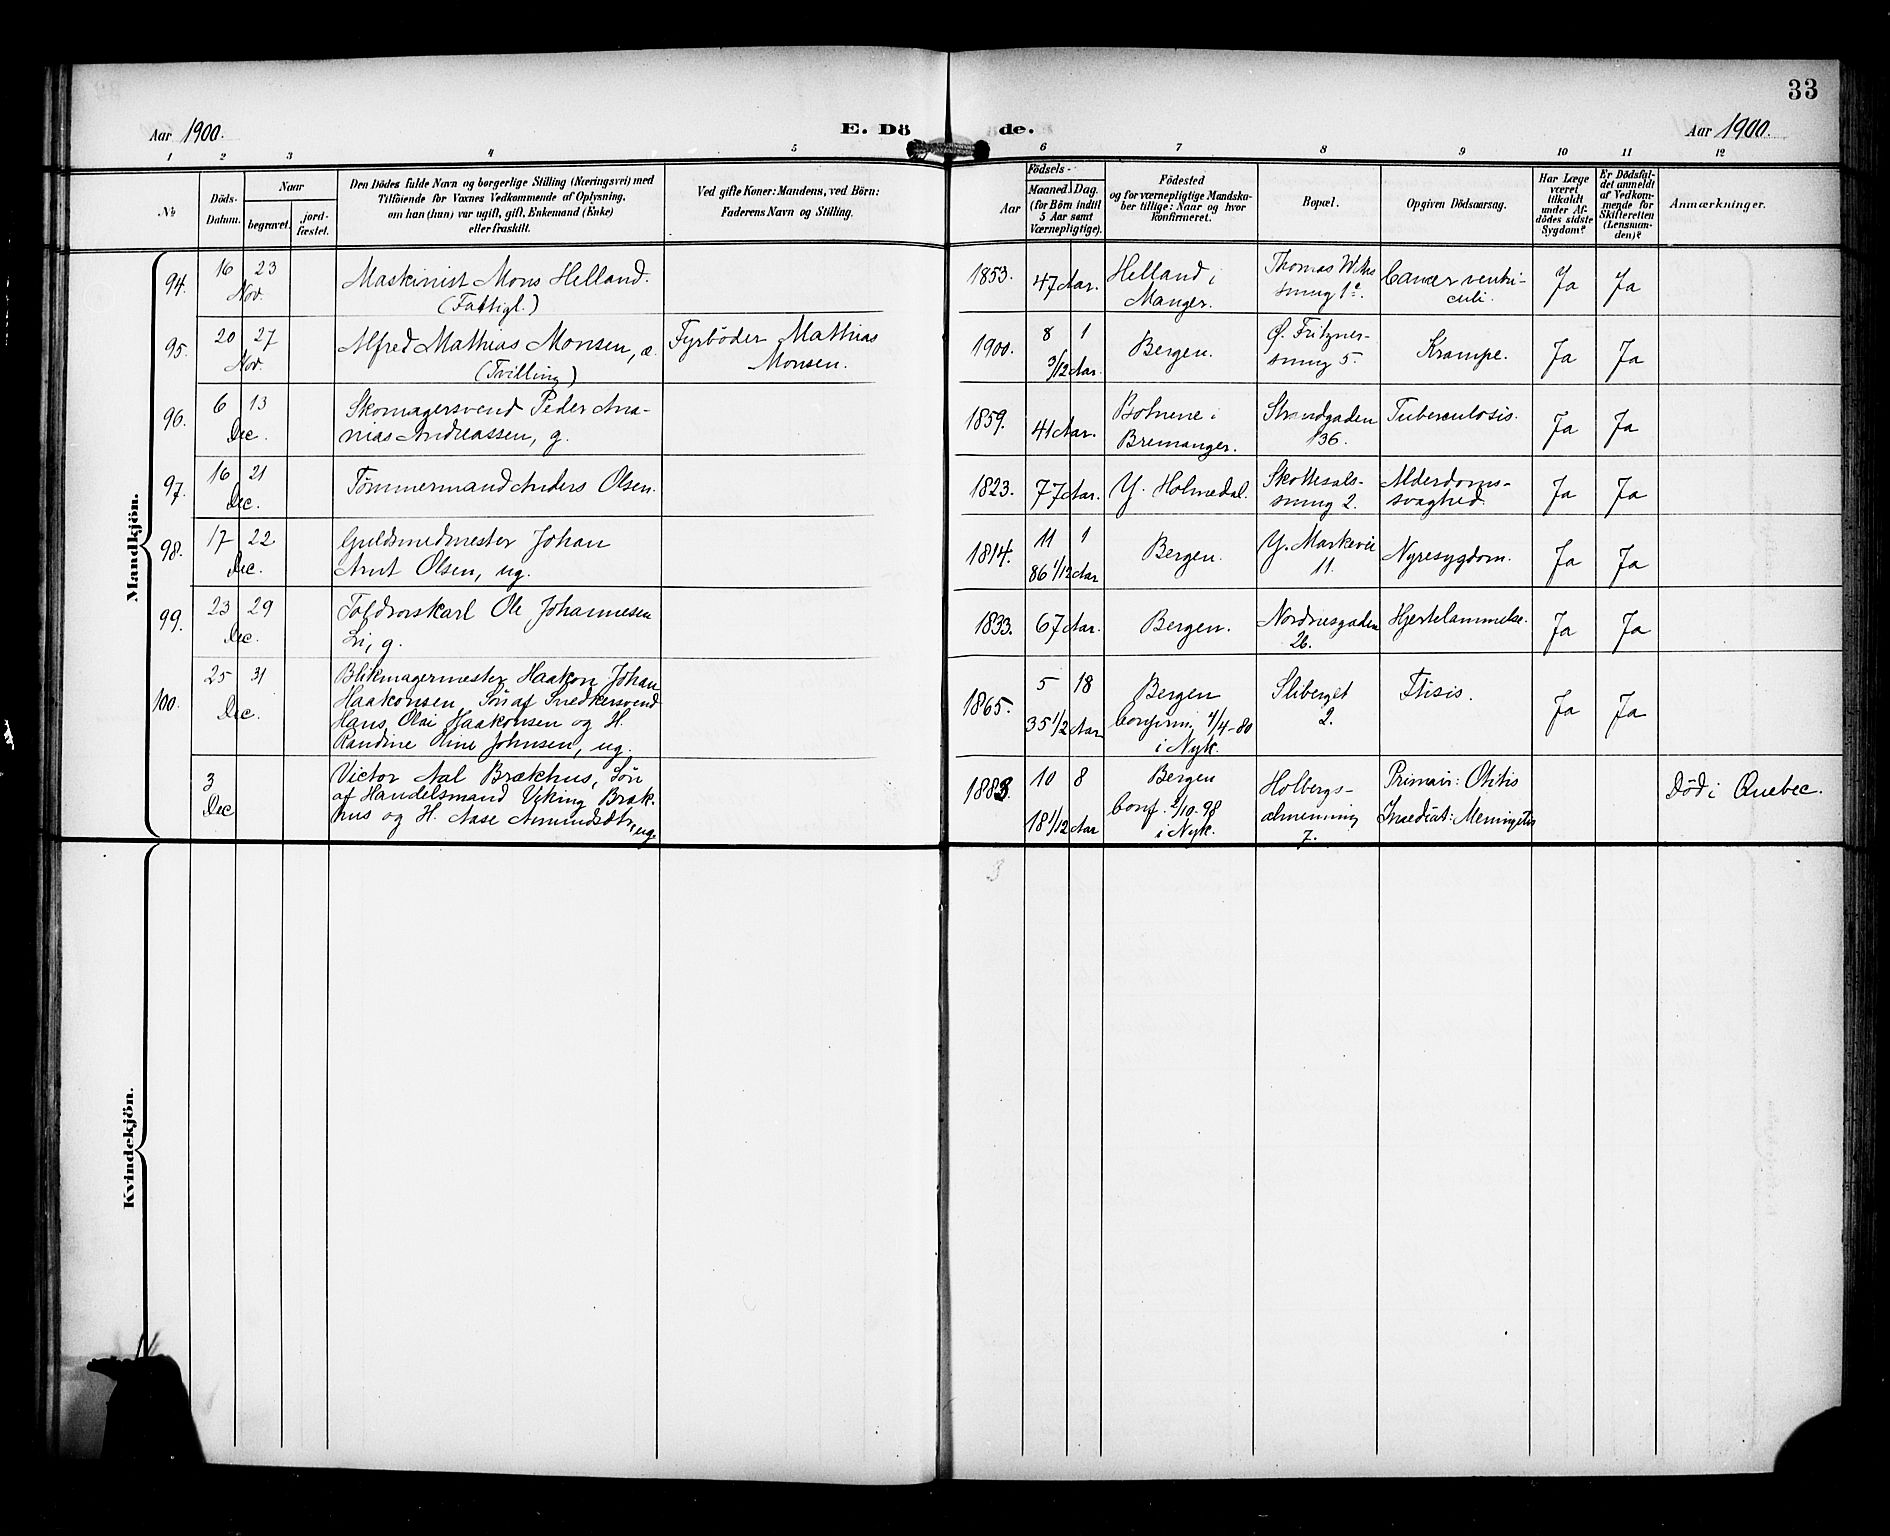 33
Aar 1900.
E. Dö de.
Aar 1900.
1 2 3 4 5 6 7 8 9 10 11 12
No
Döds-
Datum.
Naar
begravet.
jord-
fæstet.
Den Dödes fulde Navn og borgerlige Stilling (Næringsvei) med
Tilföiende for Voxnes Vedkommende af Oplysning,
om han (hun) var ugift, gift, Enkemand (Enke)
eller fraskilt.
Ved gifte Koner: Mandens, ved Börn:
Faderens Navn og Stilling.
Födsels-
Aar
Maaned. Dag.
(for Börn indtil
5 Aar samt
Værnepligtige).
Födested
og for værnepligtige Mandska-
ber tillige: Naar og hvor
konfirmeret.
Bopæl.
Opgiven Dödsaarsag.
Har Læge
været
tilkaldt
under Af-
dödes sidste
Sygdom?
Er Dödsfal-
det anmeldt
af Vedkom-
mende for
Skifteretten
(Lensman-
den)?
Anmærkninger.
Mandkjön.
94. 16 23
Nov.
Maskinist Mons Helland.
(Fattigl.)
1853. 47 Aar.
Helland i
Manger.
Thomas
smug 1
Cancer ventri-
culi.
Ja Ja
95. 20 27
Nov.
Alfred Mathias Monsen, æ.
(Tvilling)
Fyrböder Mathias
Monsen.
1900. 8 1
3/12 Aar.
Bergen.
Ö. Fritzner-
smug 5.
Krampe.
Ja Ja
96. 6 13
Dec.
Skomagersvend Peder Ana-
nias Andreassen, g.
1859. 41 Aar.
Botnene i
Bremanger.
Strandgaden
136.
Tuberculosis.
Ja Ja
97. 16 21
Dec.
Tömmermand Anders Olsen.
1823. 77 Aar.
Y. Holmedal.
Skottesals-
smug 2.
Alderdoms-
svaghed.
Ja Ja
98. 17 22
Dec.
Guldsmedmester Johan
Arnt Olsen, ug.
1814. 11 1
86 1/12 Aar
Bergen.
Y. Markevei
11.
Nyresygdom.
Ja Ja
99. 23 29
Dec.
Toldrorskarl Ole Johannesen
Li, g.
1833. 67 Aar.
Bergen.
Nordnesgaden
26.
Hjertelammelse.
Ja Ja
100. 25 31
Dec.
Blikmagermester Haakon Johan
Haakonsen, Sön af Snedkersvend
Hans Olai Haakonsen og H.
Randine Oline Johnsen, ug.
1865. 5 18
35 1/2 Aar
Bergen
Confirm. 4/4-80
i Nyk.
Sliberget
2.
Ftisis.
Ja Ja
3
Dec
Victor Aal Brækhus, Sön
af Handelsmand Viking Bræk-
hus og H. Aase Amundsdtr, ug.
1883. 10 8
18 1/12 Aar
Bergen
Conf. 2/10-98
i Nyk.
Holbergs-
almenning
7.
Primair: Otitis
Incediat: Meningitis
Död i Quebec.
Kvindekjön.
3